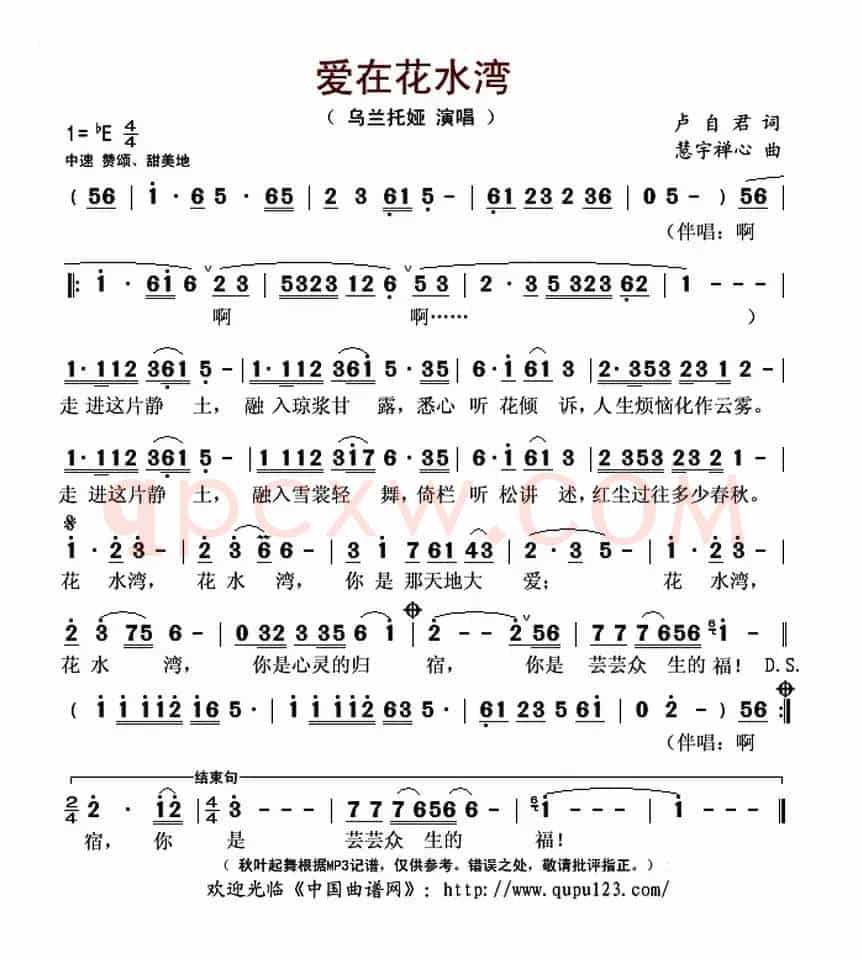 爱在花水湾
( 乌兰托娅 演唱 )
1= ♭E 4/4
卢 自 君 词
中速 赞颂、甜美地
慧宇禅心 曲
( 56 | 1 · 65 · 65 | 2 3 61 5 - | 61 23 2 36 | 0 5 - ) 56 |
(伴唱: 啊
‖: 1 · 61 6 ∨ 2 3 | 5323 12 6 ∨ 5 3 | 2 · 3 5 323 62 | 1 - - - |
啊 啊…… )
1· 112 361 5 - | 1· 112 361 5 · 35 | 6 ·1 61 3 | 2· 353 23 1 2 - |
走 进这片静 土, 融 入琼浆甘 露, 悉心 听 花倾 诉, 人生烦恼化作云雾。
1· 112 361 5 - | 1 112 317 6 · 35 | 6 ·1 61 3 | 2 353 23 2 1 - |
走 进这片静 土, 融入雪裳轻 舞, 倚栏 听 松讲 述, 红尘过往多少春秋。
qpcxw.COM
1 · 2 3 - | 2 · 3 6 6 - | 3 1 7 61 43 | 2 - 3 5 | 1 · 2 3 - |
花 水湾, 花 水 湾, 你 是 那天地大 爱; 花 水湾,
2 3 75 6 - | 0 32 3 35 6 1 | 2 - - 2 ∨ 56 | 7 7 7 656 1 - ‖
花 水 湾, 你是心灵的归 宿, 你是 芸芸众 生的 福! D.S.
( 1 1 112 16 5 · | 1 1 112 63 5 · | 61 23 5 61 | 0 2 - ) 56 :‖
(伴唱: 啊
结束句
2/4 2 · 12 | 4/4 3 - - - | 7 7 7 656 6 - | 1 - - - | 1 - - - ‖
宿, 你 是 芸芸众 生的 福!
( 秋叶起舞根据MP3记谱，仅供参考。错误之处，敬请批评指正。)
欢迎光临《中国曲谱网》: http://www.qupu123.com/